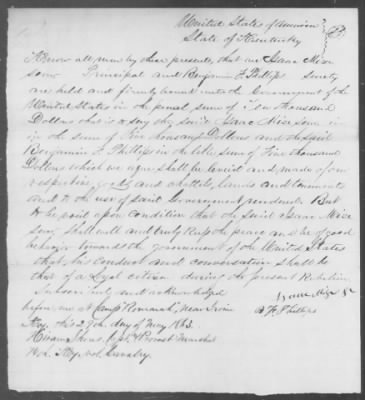 United States of America
State of Kentucky
Know all men by these presents, that we Isaac Mize
senr Principal and Benjamin F. Phillips Surety
are held and firmly bound unto the Government of the
United States in the penal sum of Ten thousand
Dollars that is to say Isaac Mize senr in
in the sum of Five thousand Dollars and the said
Benjamin F. Phillips in the like sum of Five thousand
Dollars which we agree shall be levied and made of our
respective goods and chattels, lands and tenements
and to the use of said Government rendered. But
to be void upon condition that the said Isaac Mize
senr shall well and truly keep the peace and be of good
behavior towards the government of the United States
that his conduct and conversation shall be
that of a loyal citizen during the present Rebellion
Subscribed and acknowledged
before me at Camp near Irvine
Ky. this 29th day of May 1863.
Isaac Mize Sr
B. F. Phillips
Hiram Capt. & Provost Marshal
Ky. vol. Cavalry.